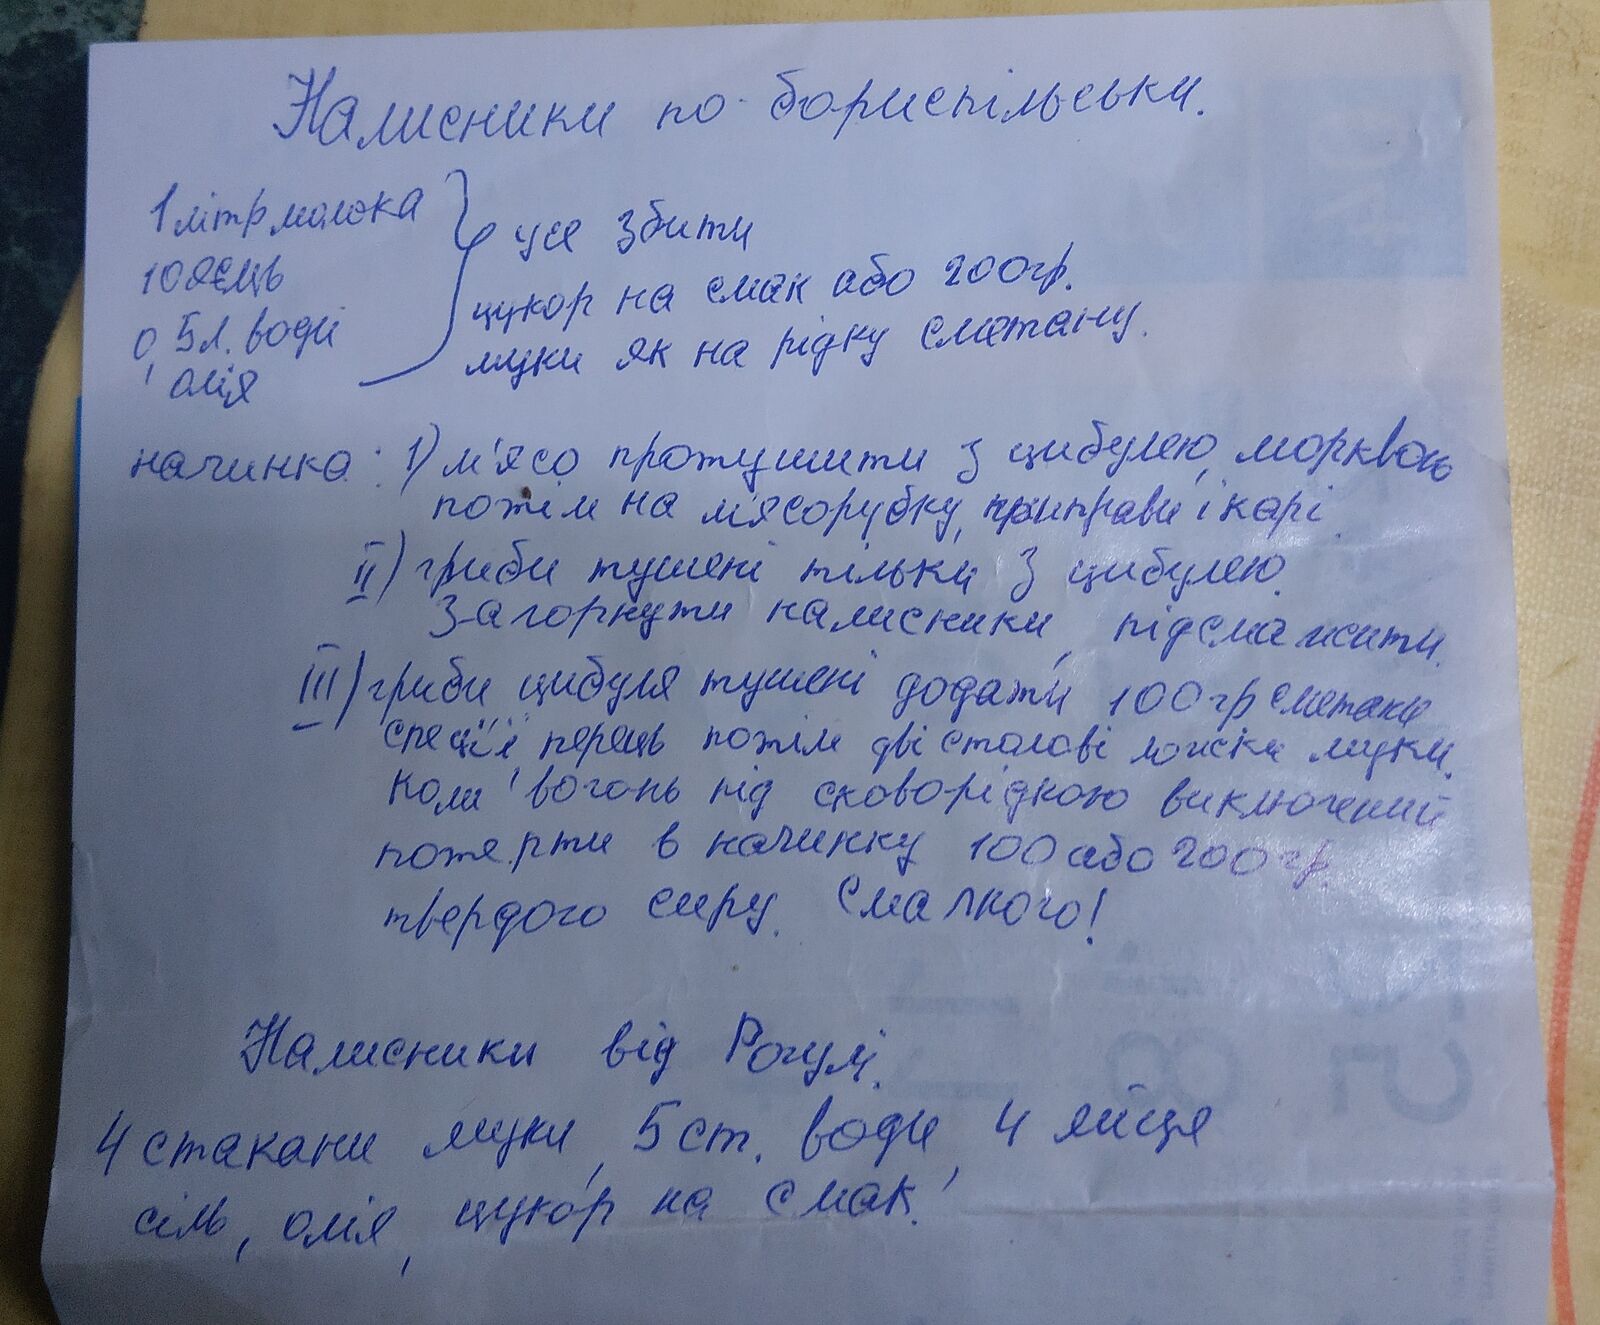 Налисники по бориспільськи.
1 літр молока
10 яєць
0,5 л. води
олія
усе збити
цукор на смак або 200 гр.
муки як на рідку сметану.
начинка: 1) м'ясо протушити з цибулею, морквою
потім на м'ясорубку, приправи і карі
II) гриби тушені тільки з цибулею.
Загорнути налисники, підсмажити.
III) гриби цибуля тушені додати 100 гр сметани
спеції перець потім дві столові ложки муки.
Коли вогонь під сковорідкою виключений
потерти в начинку 100 або 200 гр.
твердого сиру. Смачного!
Налисники від Рогулі.
4 стакани муки, 5 ст. води, 4 яйця
сіль, олія, цукор на смак.